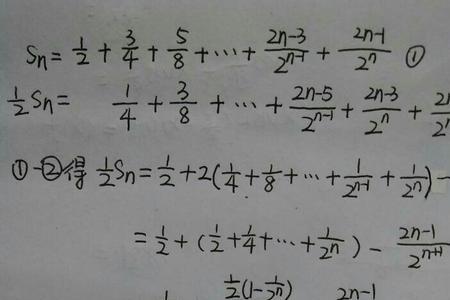 Sn = 1/2 + 3/4 + 5/8 + ⋯ + (2n-3)/2^(n-1) + (2n-1)/2^n ①
1/2 Sn = 1/4 + 3/8 + ⋯ + (2n-5)/2^(n-1) + (2n-3)/2^n +
①-②得 1/2 Sn = 1/2 + 2(1/4 + 1/8 + ⋯ + 1/2^(n-1) + 1/2^n) -
= 1/2 + (1/2 + 1/4 + ⋯ + 1/2^n) - (2n-1)/2^(n+1)
1/2(1-1/2^n) 2n-1